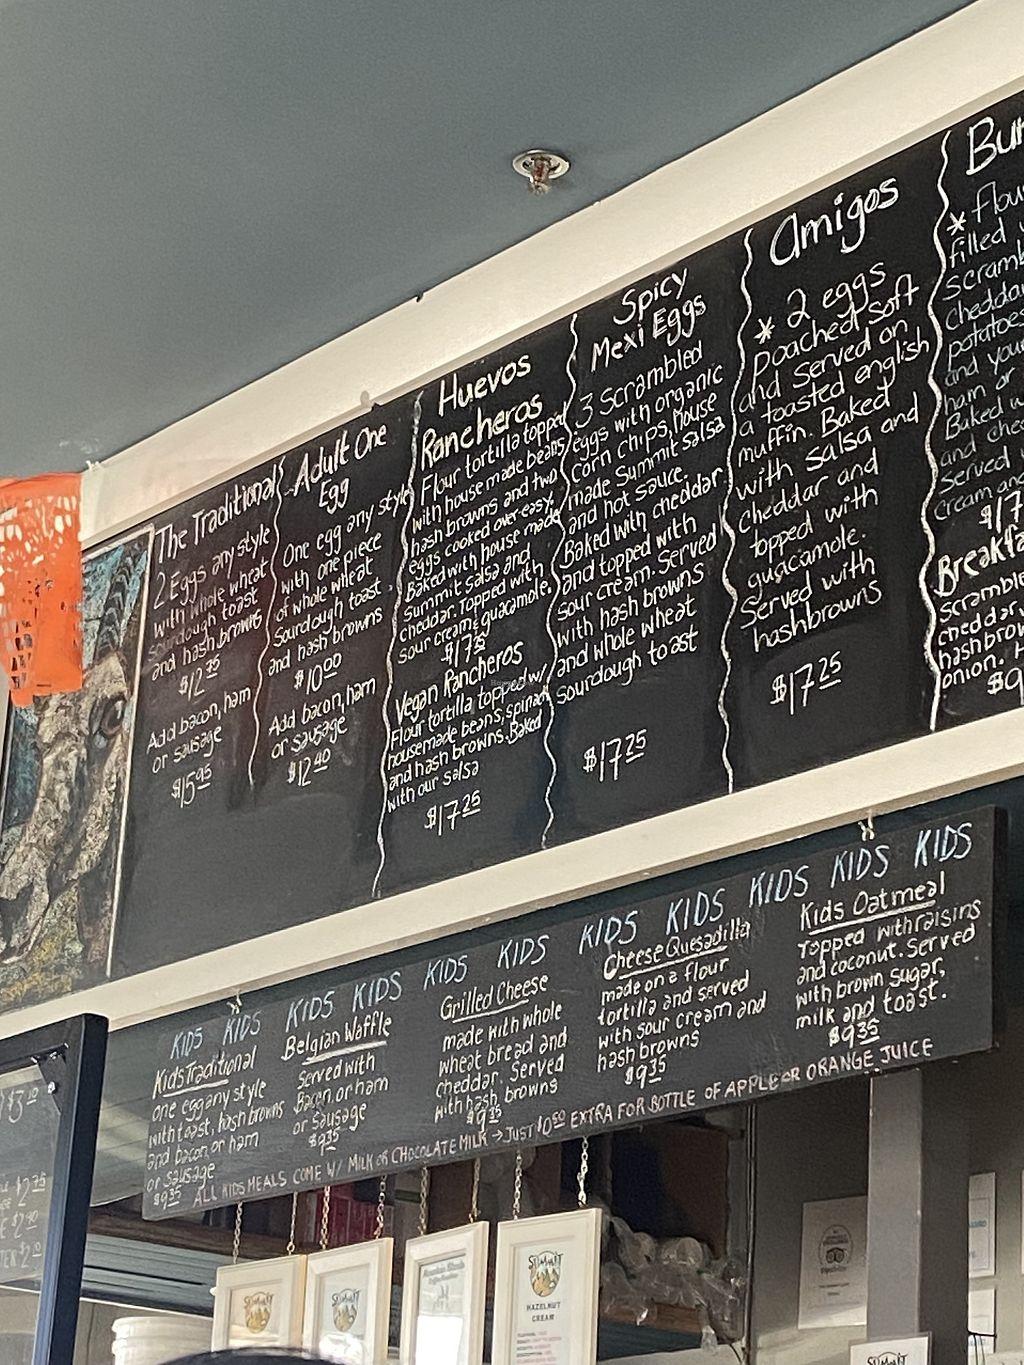 The Traditional
2 Eggs any style
with whole wheat
sourdough toast
and hash browns
$12.75
Add bacon, ham
or sausage
$15.95
Adult One
Egg
One egg any style
with one piece
of whole wheat
Sourdough toast,
and hash browns
$10.00
Add bacon, ham
or sausage
$12.40
Huevos
Rancheros
Flour tortilla topped
with house made beans
hash browns and two
eggs cooked over easy.
Baked with house made
Summit salsa and
cheddar. Topped with
sour cream & guacamole.
$17.25
Vegan Rancheros
Flour tortilla, topped w/
housemade beans, spinach
and hash browns. Baked
with our salsa
$17.25
Spicy
Mexi Eggs
3 Scrambled
eggs with organic
corn chips, house
made Summit salsa
and hot sauce.
Baked with cheddar
and topped with
sour cream. Served
with hash browns
and whole wheat
sourdough toast
$17.25
Amigos
* 2 eggs
Poached Soft
and Served on
a toasted english
muffin. Baked
with salsa and
cheddar and
topped with
guacamole.
Served with
hashbrowns
$17.25
filled
cheddar
potatoes
ham or
Baked w
and
served
cream and
$17
hashbrow
onion.
$9
KIDS KIDS KIDS KIDS KIDS KIDS KIDS KIDS KIDS KIDS
Kids Traditional
one egg any style
with toast, hash browns
and bacon or ham
or sausage
$9.35
Belgian Waffle
served with
Bacon or ham
or sausage
$9.35
Grilled Cheese
made with whole
wheat bread and
cheddar. Served
with hash browns
$9.35
Cheese Quesadilla
made on a flour
tortilla and served
with sour cream and
hash browns
$9.35
Kids Oatmeal
Topped with raisins
and coconut. Served
with brown sugar,
milk and toast.
$9.35
ALL KIDS MEALS COME W/ MILK OR CHOCOLATE MILK → JUST $0.50 EXTRA FOR BOTTLE OF APPLE OR ORANGE JUICE
$3.10
$2.75
$2.90
$2.10
SUMMIT
SUMMIT
SUMMIT
HAZELNUT
CREAM
SUMMIT